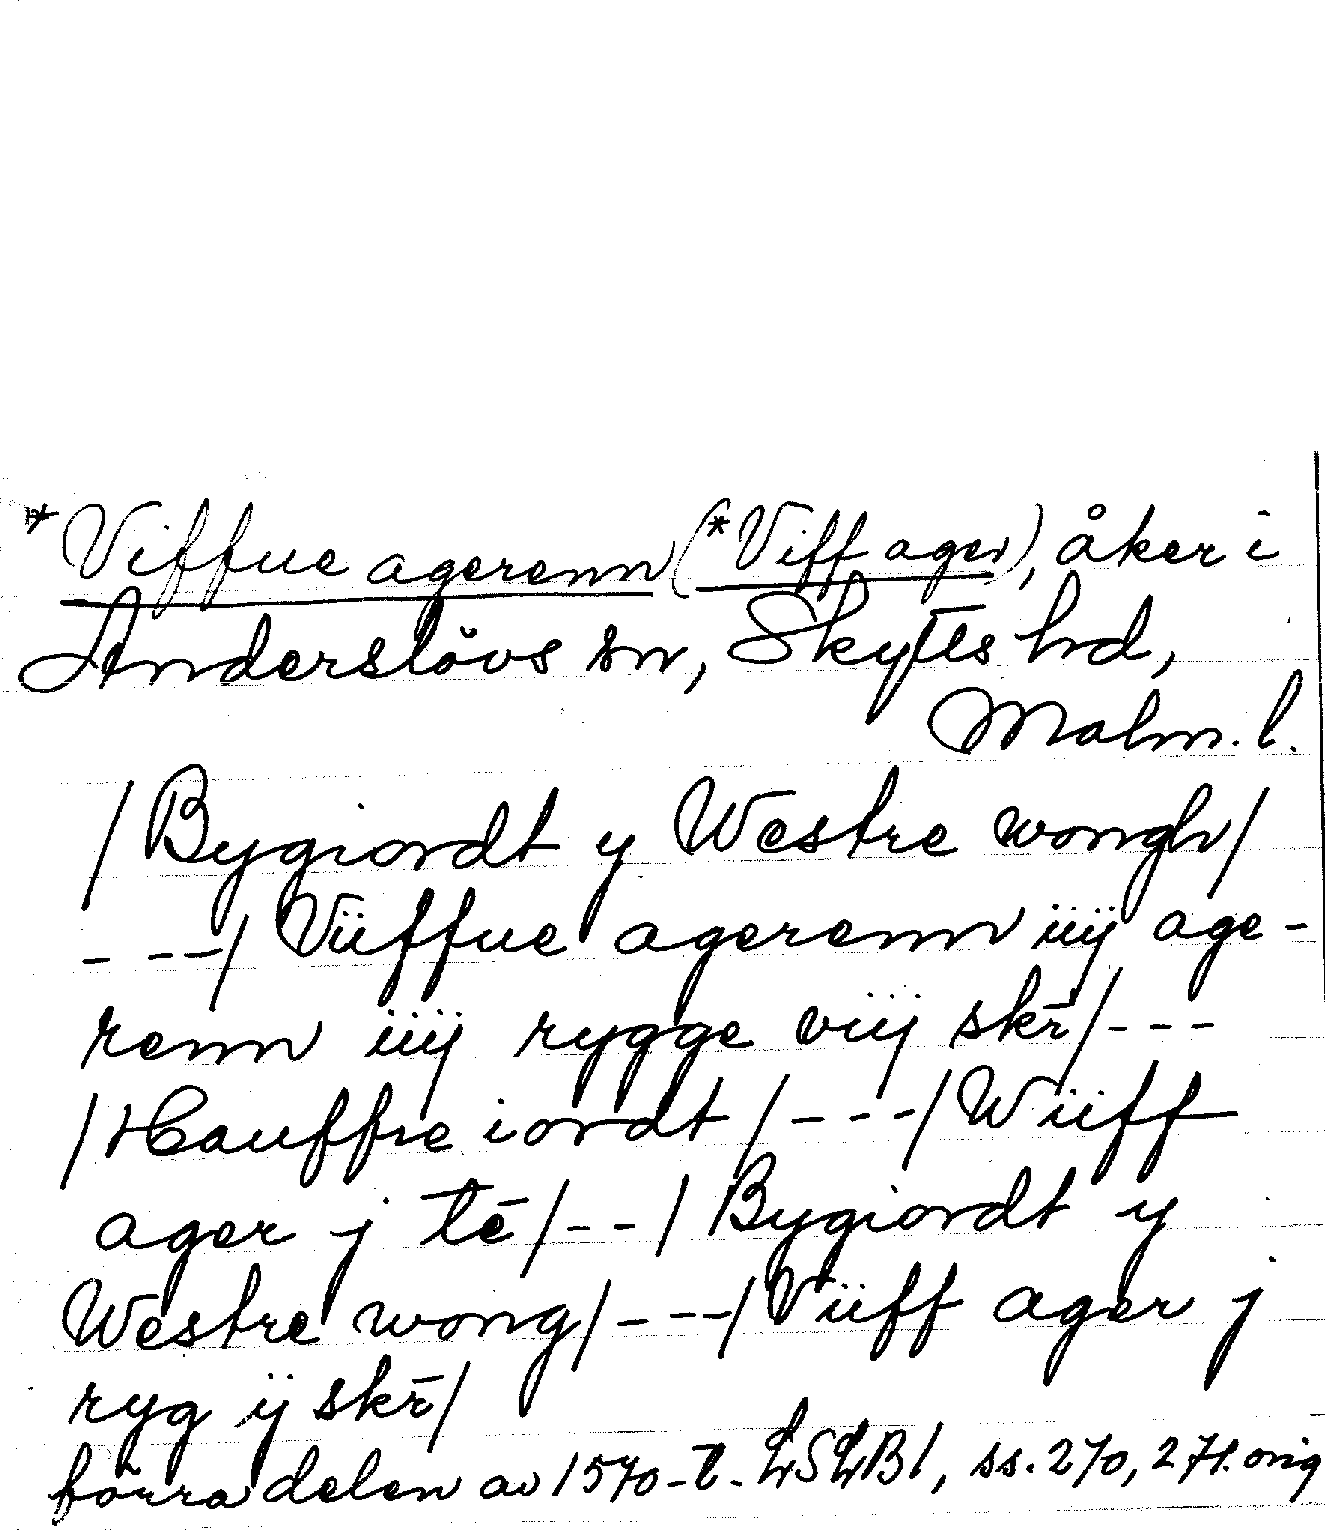 * Viffue agerenn (*Viff ager), åker i
Anderslövs sn, Skytts hd,
Malm. l.
/Bygiordt y Westre wongh/
- - -/ Viiffue agerenn iiij age-
renn iiij rygge viij skr̄/- - -
/Hauffre iordt/- - -/ Wiiff
ager j tē/- -/ Bygiordt y
Westre wong/- - -/ Viiff ager j
ryg ij skr̄/
förra delen av 1570-t. LSLB1, ss. 270, 271. orig